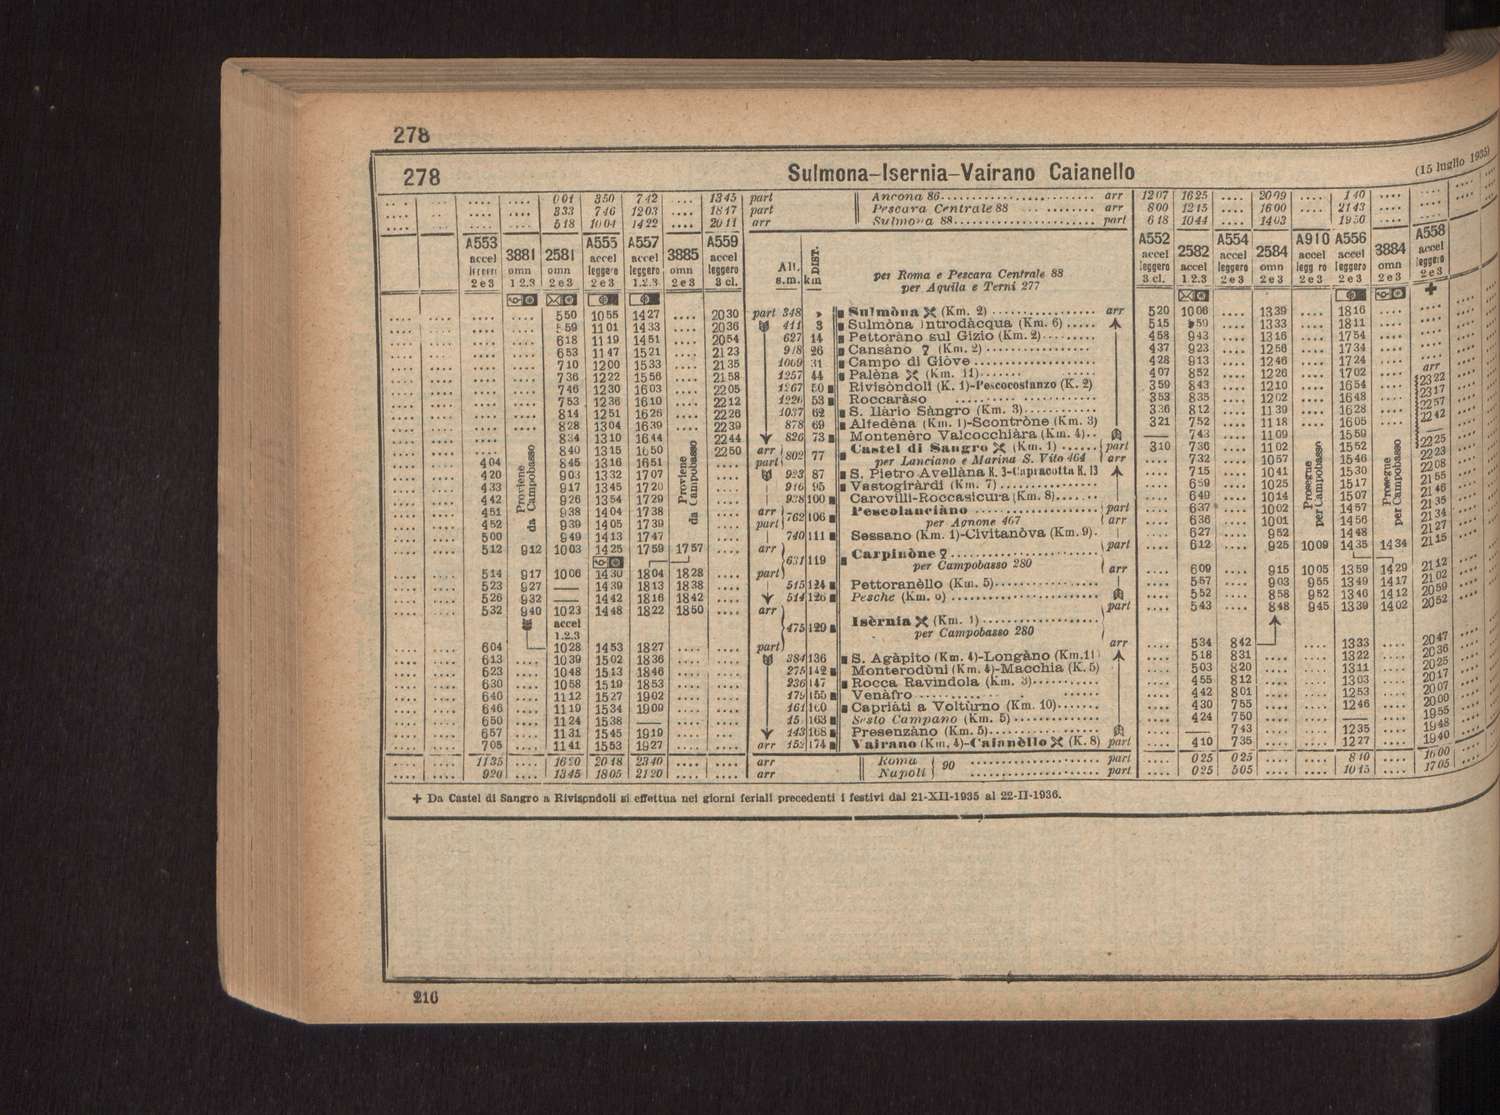 278
278 Sulmona–Isernia–Vairano Caianello (15 luglio 1935)
.... .... .... .... 001 350 742 .... 1345 part Ancona 86 arr 1207 1625 .... 2009 .... 140 .... ....
.... .... .... .... 333 746 1203 .... 1817 part Pescara Centrale 88 arr 800 1215 .... 1600 .... 2143 .... ....
.... .... .... .... 518 1004 1422 .... 2011 arr Sulmona 88 part 618 1044 .... 1403 .... 1950 .... ....
A553 accel leggero 2 e 3
3881 omn 1 2.3
2581 omn 2 e 3
A555 accel leggero 2 e 3
A557 accel leggero 1.2.3
3885 omn 2 e 3
A559 accel leggero 3 cl.
Alt. s.m. DIST. km
per Roma e Pescara Centrale 88
per Aquila e Terni 277
A552 accel leggero 3 cl.
2582 accel 1.2.3
A554 accel leggero 2 e 3
2584 omn 2 e 3
A910 accel legg ro 2 e 3
A556 accel leggero 2 e 3
3884 omn 2 e 3
A558 accel leggero 2 e 3
✚
.... .... 550 1055 1427 .... 2030 part 348 » Sulmòna (Km. 2) arr 520 1006 .... 1339 .... 1816 .... ....
.... .... 559 1101 1433 .... 2036 411 3 Sulmòna Introdàcqua (Km. 6) 515 959 .... 1333 .... 1811 .... ....
.... .... 618 1119 1451 .... 2054 627 14 Pettoràno sul Gizio (Km. 2) 458 943 .... 1316 .... 1754 .... ....
.... .... 653 1147 1521 .... 2123 26 Cansàno (Km. 2) 437 923 .... 1256 .... 1734 .... ....
.... .... 710 1200 1533 .... 2135 1009 31 Campo di Giòve 428 913 .... 1246 .... 1724 .... arr
.... .... 736 1222 1556 .... 2158 1257 44 Palèna (Km. 11) 407 852 .... 1226 .... 1702 .... 2322
.... .... 746 1230 1603 .... 2205 1267 50 Rivisòndoli (K. 1)-Pescocostanzo (K. 2) 359 843 .... 1210 .... 1654 .... 2317
.... .... 753 1236 1610 .... 2212 1226 53 Roccaràso 353 835 .... 1202 .... 1648 .... 2257
.... .... 814 1251 1626 .... 2226 1037 62 S. Ilàrio Sàngro (Km. 3) 336 812 .... 1139 .... 1628 .... 2242
.... .... 828 1304 1639 .... 2239 878 69 Alfedèna (Km. 1)-Scontròne (Km. 3) 321 752 .... 1118 .... 1605 .... —
.... .... 834 1310 1644 .... 2244 826 73 Montenèro Valcocchiàra (Km. 4) — 743 .... 1109 .... 1559 .... 2225
.... 840 1315 1650 .... 2250 arr 802 77 Castel di Sangro (Km. 1) part 310 736 .... 1102 .... 1552 2223
404 845 1316 1651 .... part per Lanciano e Marina S. Vito 464 arr .... 732 .... 1057 1546 2208
420 903 1332 1707 923 87 S. Pietro Avellàna K. 3-Capracotta K. 13 .... 715 .... 1041 1530 2155
433 917 1345 1720 916 95 Vastogiràrdi (Km. 7) .... 659 .... 1025 1517 2146
442 926 1354 1729 938 100 Carovilli-Roccasicura (Km. 8) .... 649 .... 1014 1507 2135
451 938 1404 1738 arr 762 106 Pescolanciàno part .... 637 .... 1002 1457 2134
452 939 1405 1739 part per Agnone 467 arr .... 636 .... 1001 1456 2127
500 949 1413 1747 740 111 Sessano (Km. 1)-Civitanòva (Km. 9) .... 627 .... 952 1448 2115
Proviene da Campobasso
Proviene da Campobasso
Prosegue per Campobasso
Prosegue per Campobasso
512 912 1003 1425 1759 1757 .... arr 631 119 Carpinòne part .... 612 .... 925 1009 1435 1434
514 917 1006 1430 1804 1828 .... part per Campobasso 280 arr .... 609 .... 915 1005 1359 1429 2112
523 927 — 1439 1813 1838 .... 515 124 Pettoranèllo (Km. 5) .... 557 .... 903 955 1349 1417 2102
526 932 — 1442 1816 1842 .... 514 126 Pesche (Km. 6) .... 552 .... 858 952 1346 1412 2059
532 940 1023 1448 1822 1850 .... arr 475 129 Isèrnia (Km. 1) part .... 543 .... 848 945 1339 1402 2052
accel 1.2.3
per Campobasso 280
604 1028 1453 1827 .... .... part arr .... 534 842 .... 1333 .... 2047
613 .... 1039 1502 1836 .... .... 384 136 S. Agàpito (Km. 4)-Longàno (Km. 11) .... 518 831 .... .... 1322 .... 2036
623 .... 1048 1513 1846 .... .... 275 142 Monterodùni (Km. 4)-Macchia (K. 5) .... 503 820 .... .... 1311 .... 2025
630 .... 1058 1519 1853 .... .... 236 147 Rocca Ravindola (Km. 3) .... 455 812 .... .... 1303 .... 2017
640 .... 1112 1527 1902 .... .... 179 155 Venàfro .... 442 801 .... .... 1253 .... 2007
646 .... 1119 1534 1909 .... .... 161 160 Capriàti a Voltùrno (Km. 10) .... 430 755 .... .... 1246 .... 2000
650 .... 1124 1538 — .... .... 163 Sesto Campano (Km. 5) .... 424 750 .... .... — .... 1955
657 .... 1131 1545 1919 .... .... 143 168 Presenzàno (Km. 5) .... — 743 .... .... 1235 .... 1948
705 .... 1141 1553 1927 .... .... arr 152 174 Vairano (Km. 4)-Caianèllo (K. 8) part .... 410 735 .... .... 1227 .... 1940
1135 .... 1620 2018 2340 .... .... arr Roma 90 part .... 025 025 .... .... 810 .... 1600
920 .... 1345 1805 2120 .... .... arr Napoli part .... 025 505 .... .... 1015 .... 1705
✚ Da Castel di Sangro a Rivisondoli si effettua nei giorni feriali precedenti i festivi dal 21-XII-1935 al 22-II-1936.
216